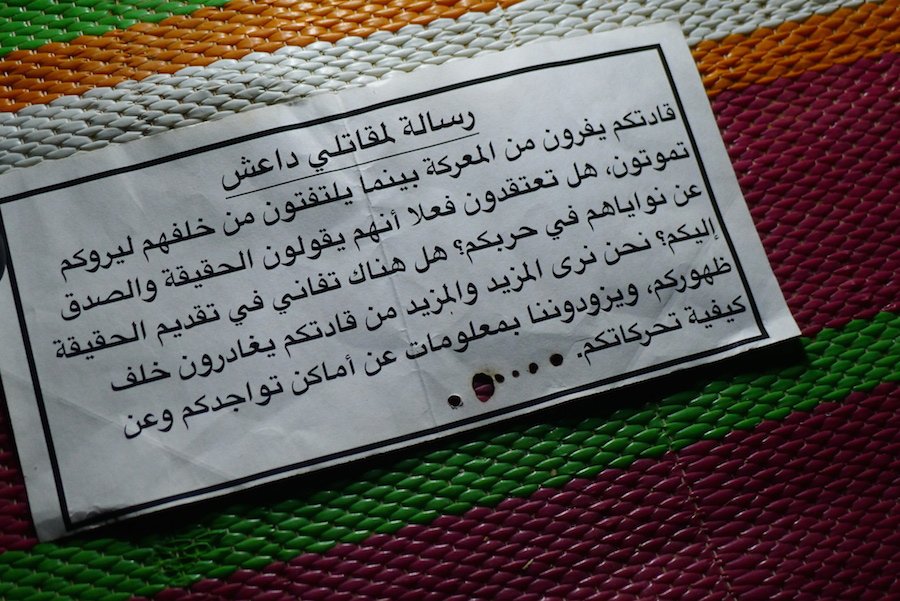 رسالة لمقاتلي داعش
قادتكم يفرون من المعركة بينما يلتفتون من خلفهم ليروكم
تموتون، هل تعتقدون فعلا أنهم يقولون الحقيقة والصدق
عن نواياهم في حربكم؟ هل هناك تفاني في تقديم الحقيقة
إليكم؟ نحن نرى المزيد والمزيد من قادتكم يغادرون خلف
ظهوركم، ويزودوننا بمعلومات عن أماكن تواجدكم وعن
كيفية تحركاتكم.